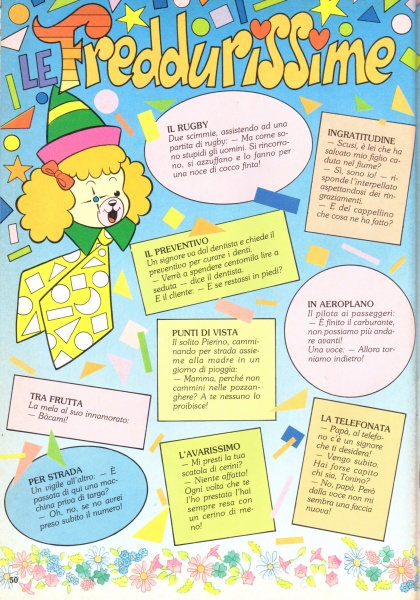 LE Freddurissime
IL RUGBY
Due scimmie, assistendo ad una
partita di rugby: — Ma come so-
no stupidi gli uomini. Si rincorro-
no, si azzuffano e lo fanno per
una noce di cocco finta!
INGRATITUDINE
— Scusi, è lei che ha
salvato mio figlio ca-
duto nel fiume?
— Sì, sono io! — ri-
sponde l'interpellato
aspettandosi dei rin-
graziamenti.
— E del cappellino
che cosa ne ha fatto?
IL PREVENTIVO
Un signore va dal dentista e chiede il
preventivo per curare i denti.
— Verrà a spendere centomila lire a
seduta — dice il dentista.
E il cliente: — E se restassi in piedi?
IN AEROPLANO
Il pilota ai passeggeri:
— È finito il carburante,
non possiamo più anda-
re avanti!
Una voce: — Allora tor-
niamo indietro!
PUNTI DI VISTA
Il solito Pierino, cammi-
nando per strada assie-
me alla madre in un
giorno di pioggia:
— Mamma, perché non
cammini nelle pozzan-
ghere? A te nessuno lo
proibisce!
TRA FRUTTA
La mela al suo innamorato:
— Bàcami!
LA TELEFONATA
— Papà, al telefo-
no c'è un signore
che ti desidera!
— Vengo subito.
Hai forse capito
chi sia, Tonino?
— No, papà. Però
dalla voce non mi
sembra una faccia
nuova!
L'AVARISSIMO
— Mi presti la tua
scatola di cerini?
— Niente affatto!
Ogni volta che te
l'ho prestata l'hai
sempre resa con
un cerino di me-
no!
PER STRADA
Un vigile all'altro: — È
passata di qui una mac-
china priva di targa?
— Oh, no, se no avrei
preso subito il numero!
50